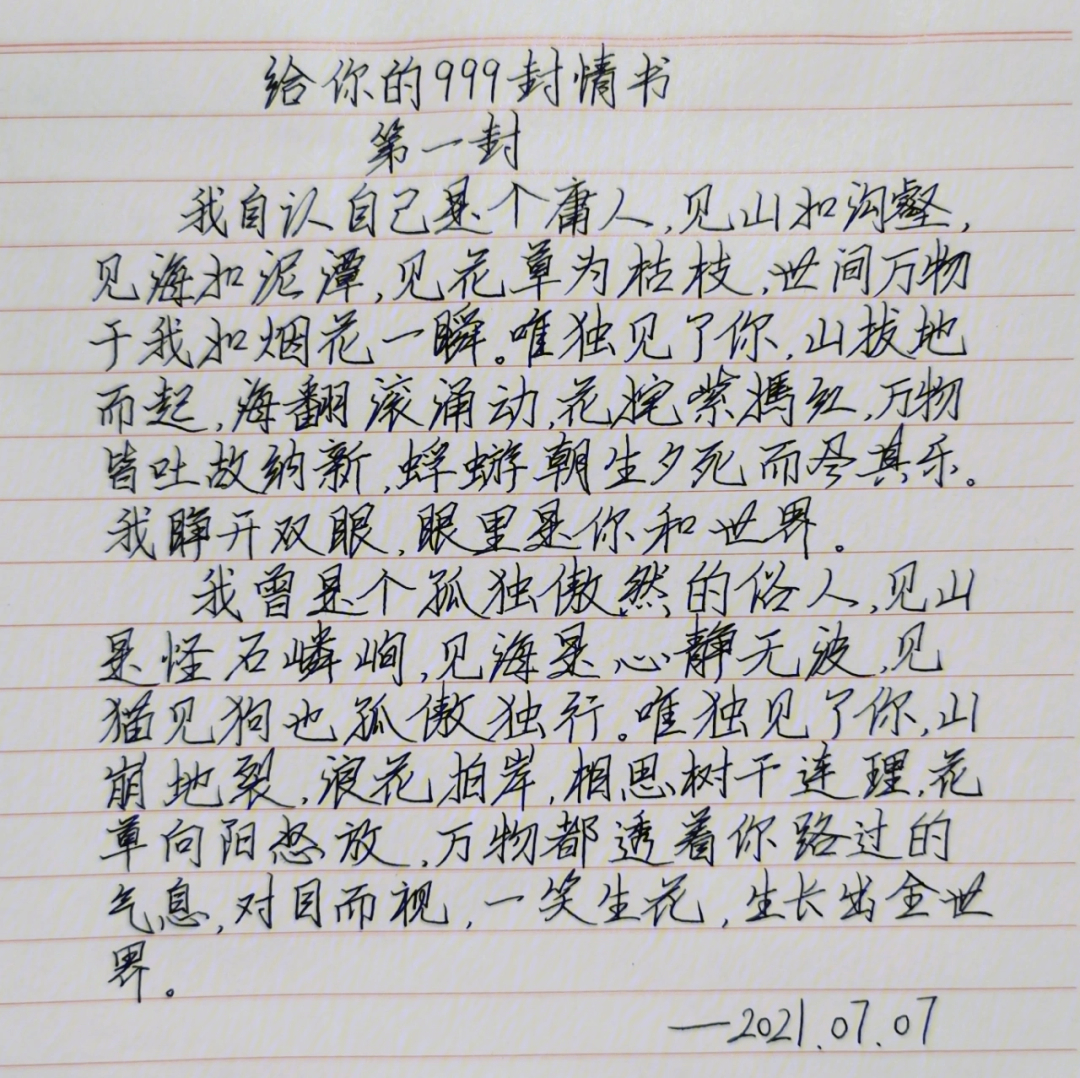 给你的999封情书
第一封
我自认自己是个庸人,见山如沟壑,
见海如泥潭,见花草为枯枝,世间万物
于我如烟花一瞬。唯独见了你,山拔地
而起,海翻滚涌动,花姹紫嫣红,万物
皆吐故纳新,蜉蝣朝生夕死而尽其乐。
我睁开双眼,眼里是你和世界。
我曾是个孤独傲然的俗人,见山
是怪石嶙峋,见海是心静无波,见
猫见狗也孤傲独行。唯独见了你,山
崩地裂,浪花拍岸,相思树干连理,花
草向阳怒放,万物都透着你路过的
气息,对目而视,一笑生花,生长出全世
界。
—2021.07.07